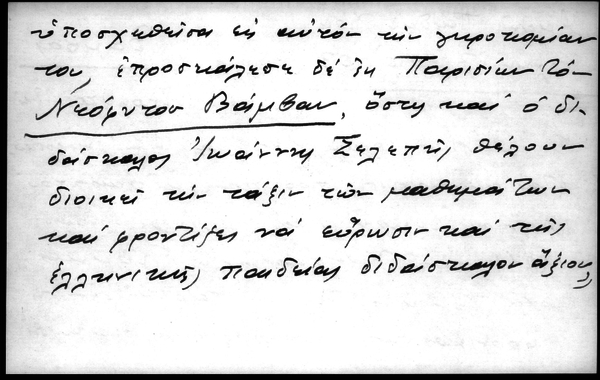 ὑποσχεθεῖσα εἰς αὐτὸν τὴν γηροκομίαν
του, ἐπροσκάλεσε δὲ ἐκ Παρισίων τὸν
Νεόφυτον Βάμβαν, ὅστις καὶ ὁ δι-
δάσκαλος Ἰωάννης Σελεπῆς θέλουν
διοικεῖ τὴν τάξιν τῶν μαθημάτων
καὶ φροντίζει νὰ εὕρωσιν καὶ τῆς
ἑλληνικῆς παιδείας διδάσκαλον ἄξιον,